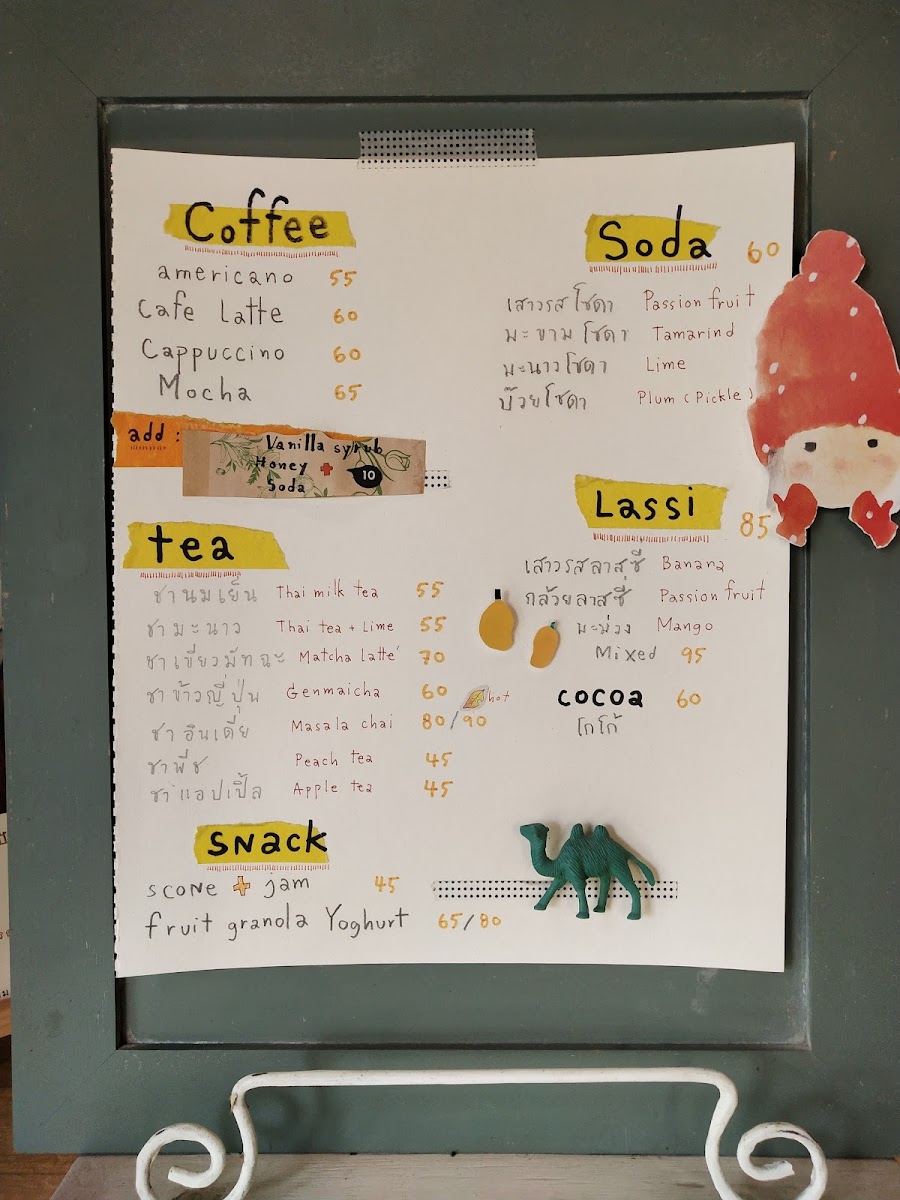 Coffee
americano 55
Cafe Latte 60
Cappuccino 60
Mocha 65
add :
Vanilla syrub
Honey + 10
Soda
tea
ชานมเย็น Thai milk tea 55
ชามะนาว Thai tea + Lime 55
ชาเขียวมัทฉะ Matcha latte' 70
ชาข้าวญี่ปุ่น Genmaicha 60 hot
ชาอินเดีย Masala chai 80/90
ชาพีช Peach tea 45
ชาแอปเปิ้ล Apple tea 45
Snack
scone + jam 45
fruit granola Yoghurt 65/80
Soda 60
เสาวรสโซดา Passion fruit
มะขามโซดา Tamarind
มะนาวโซดา Lime
บ๊วยโซดา Plum (Pickle)
Lassi 85
เสาวรสลาสซี่ Banana
กล้วยลาสซี่ Passion fruit
มะม่วง Mango
Mixed 95
cocoa 60
โกโก้